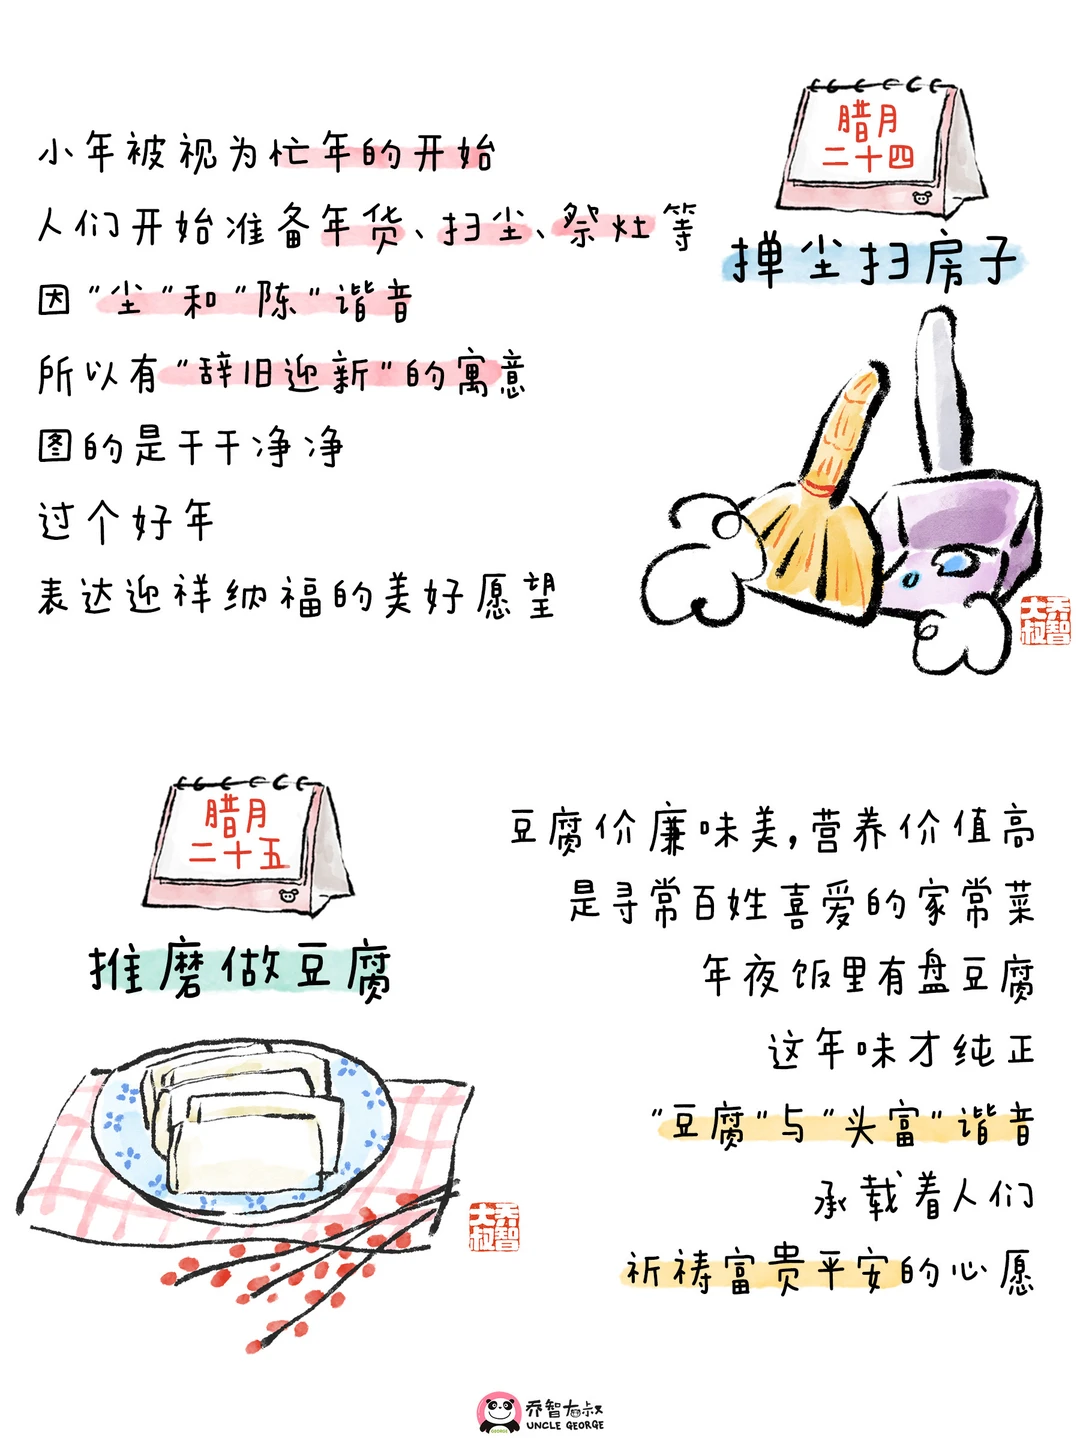 腊月
二十四
掸尘扫房子
小年被视为忙年的开始
人们开始准备年货、扫尘、祭灶等
因“尘”和“陈”谐音
所以有“辞旧迎新”的寓意
图的是干干净净
过个好年
表达迎祥纳福的美好愿望
乔智
大叔
腊月
二十五
推磨做豆腐
豆腐价廉味美,营养价值高
是寻常百姓喜爱的家常菜
年夜饭里有盘豆腐
这年味才纯正
“豆腐”与“头富”谐音
承载着人们
祈祷富贵平安的心愿
乔智
大叔
GEORGE
乔智大叔
UNCLE GEORGE